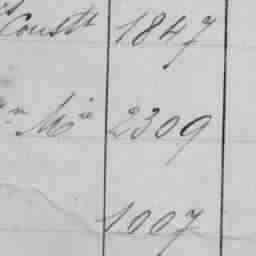 Constt 1847
Mia 2309
1007